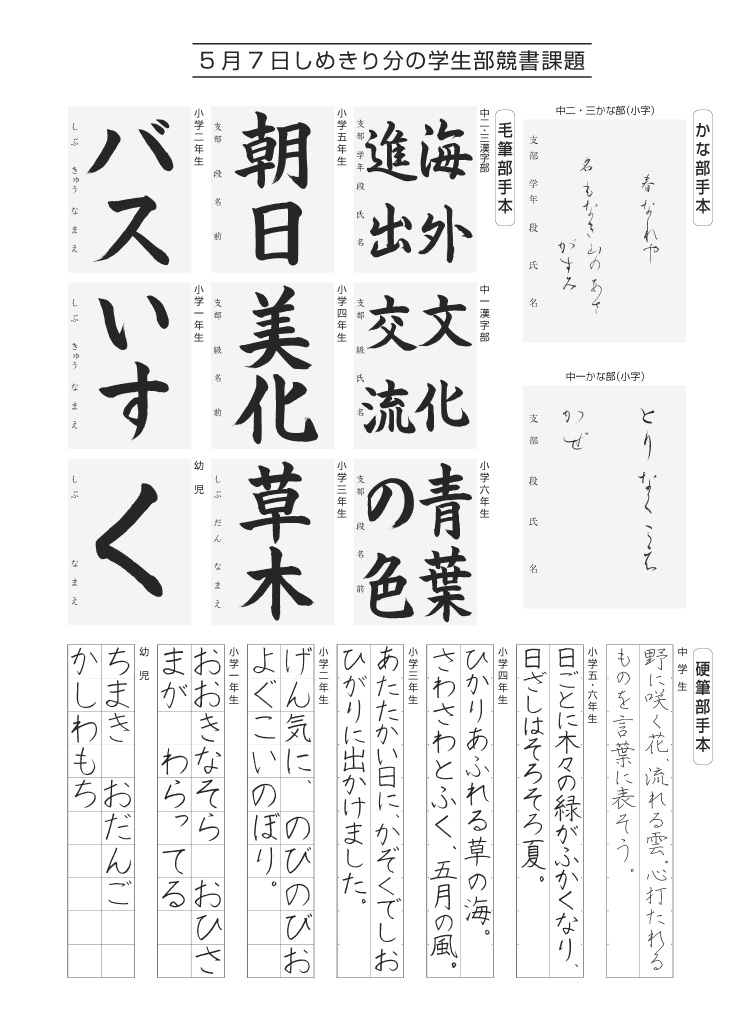 5月7日しめきり分の学生部競書課題
かな部手本
中二・三かな部(小字)
春なれや
名もなき山のあさ
がすみ
支部 学年 段 氏 名
中一かな部(小字)
とり なく こゑ
かぜ
支部 段 氏 名
毛筆部手本
中二・三漢字部
海外
進出
支部 学年 段 氏 名
小学五年生
朝日
支部 段 名 前
小学二年生
バス
しぶ きゅう なまえ
中一漢字部
文化
交流
支部 級 氏 名
小学四年生
美化
支部 級 名 前
小学一年生
いす
しぶ きゅう なまえ
小学六年生
青葉
の色
支部 段 名 前
小学三年生
草木
しぶ だん なまえ
幼児
く
しぶ なまえ
硬筆部手本
中学生
野に咲く花、流れる雲。心打たれる
ものを言葉に表そう。
小学五・六年生
日ごとに木々の緑がふかくなり、
日ざしはそろそろ夏。
小学四年生
ひかりあふれる草の海。
さわさわとふく、五月の風。
小学三年生
あたたかい日に、かぞくでしお
ひがりに出かけました。
小学二年生
げん気に、のびのびお
よぐこいのぼり。
小学一年生
おおきなそら おひさ
まが わらってる
幼児
ちまき おだんご
かしわもち